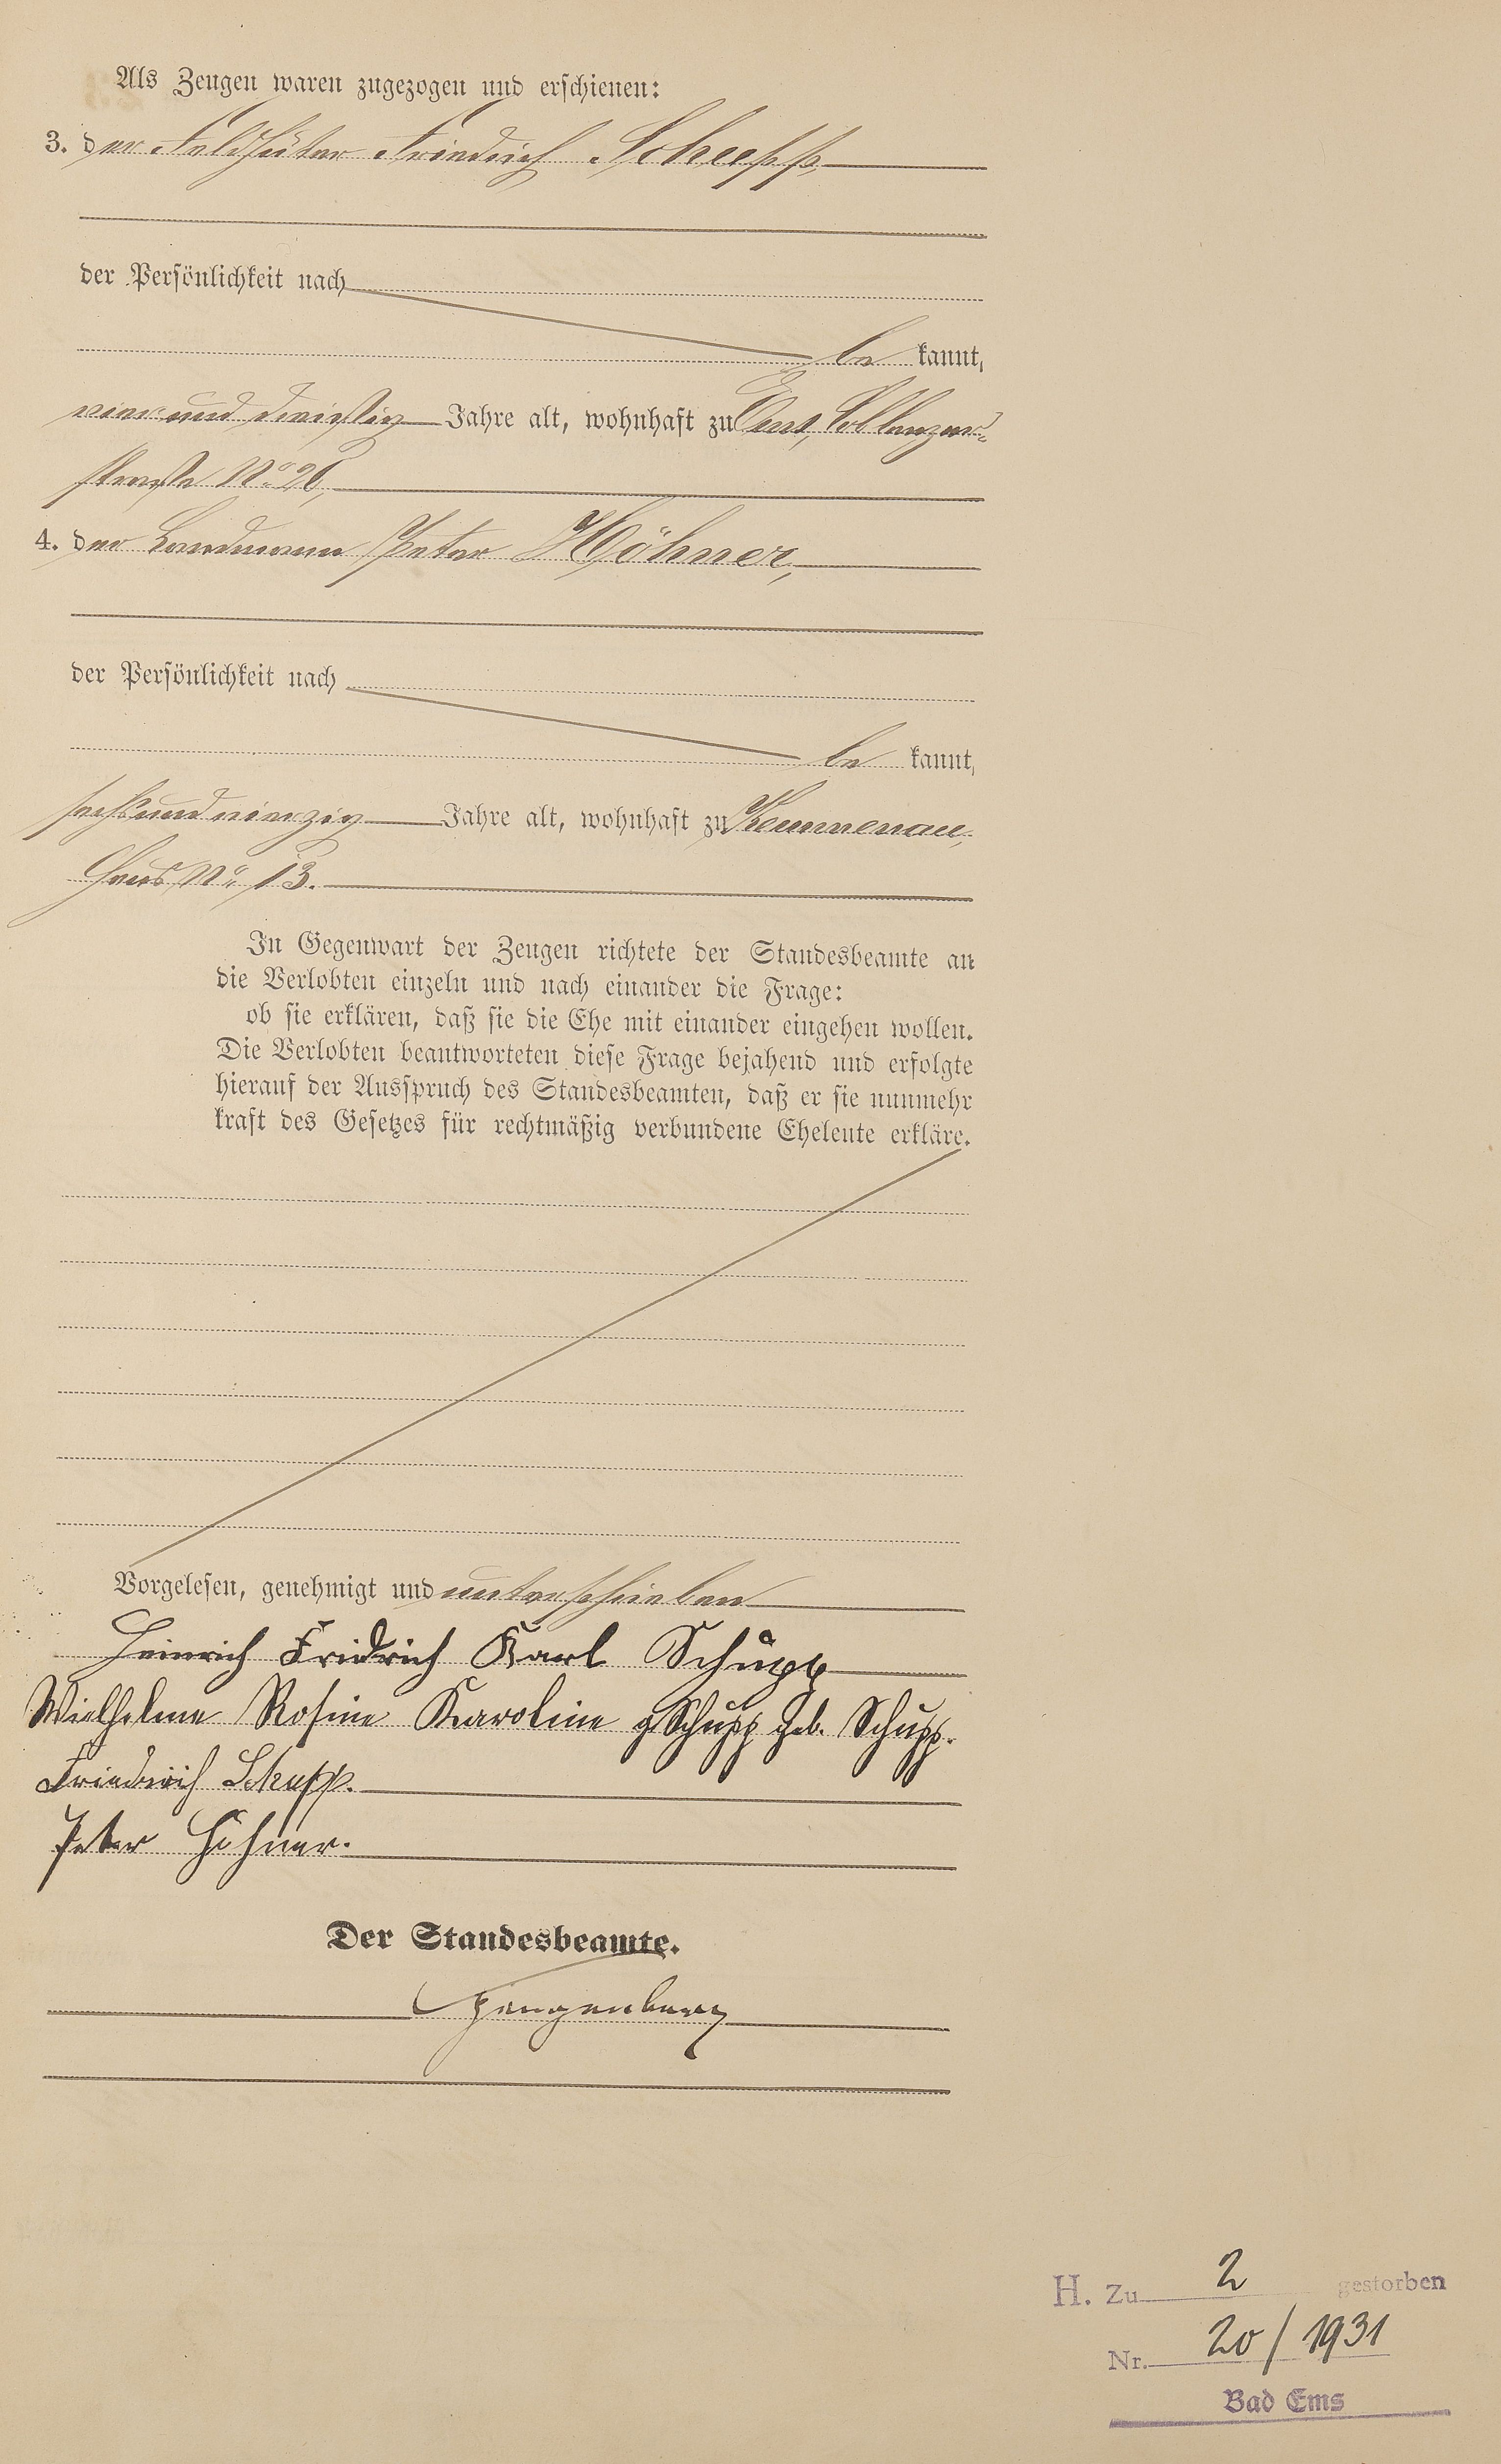 Als Zeugen waren zugezogen und erschienen:
3. der Feldhüter Friedrich Schupp,
der Persönlichkeit nach
be kannt,
vier und dreißig Jahre alt, wohnhaft zu Ems, Coblenzer-
straße No 26,
4. der Landmann Peter Höhner,
der Persönlichkeit nach
be kannt,
sechsundvierzig Jahre alt, wohnhaft zu Kemmenau,
Haus No 13.
In Gegenwart der Zeugen richtete der Standesbeamte an
die Verlobten einzeln und nach einander die Frage:
ob sie erklären, daß sie die Ehe mit einander eingehen wollen.
Die Verlobten beantworteten diese Frage bejahend und erfolgte
hierauf der Ausspruch des Standesbeamten, daß er sie nunmehr
kraft des Gesetzes für rechtmäßig verbundene Eheleute erkläre.
Vorgelesen, genehmigt und unterschrieben
Heinrich Fridrich Karl Schupp
Wielhelme Rosine Karoline Schupp geb. Schupp.
Friedrich Schupp.
Peter Höhner.
Der Standesbeamte.
H. Zu 2 gestorben
Nr. 20/1931
Bad Ems